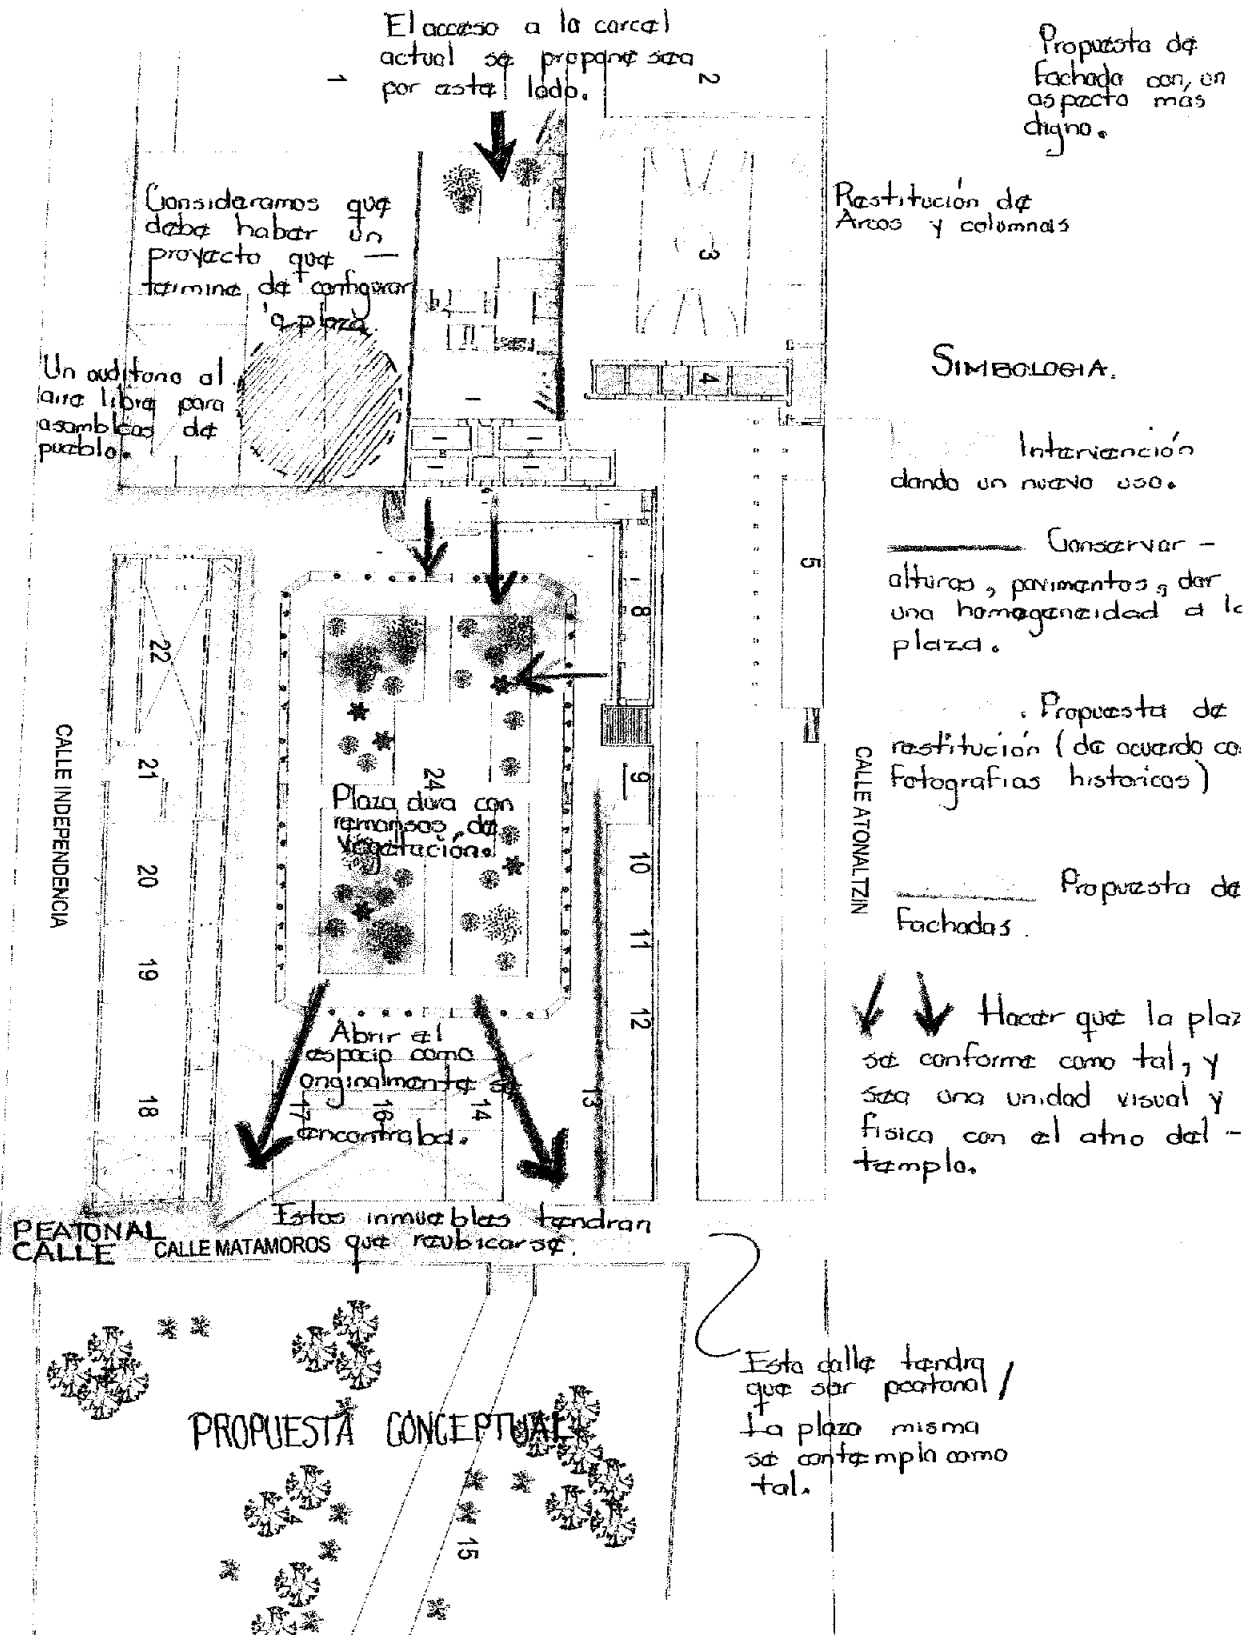 El acceso a la carcel
actual se propone sea
por este lado.
Propuesta de
Fachada con, un
aspecto mas
digno.
1
2
Consideramos que
debe haber un
proyecto que —
termine de configurar
la plaza.
Restitución de
Arcos y columnas
3
Un auditorio al
aire libre para
asambleas de
pueblo.
4
SIMBOLOGIA.
Intervención
dando un nuevo uso.
Conservar -
alturas, pavimentos, dar
una homogeneidad a la
plaza.
. Propuesta de
restitución (de acuerdo co
Fotografias historicas)
Propuesta de
Fachadas.
Hacer que la plaz
se conforme como tal, y
sea una unidad visual y
Fisica con el atrio del -
templo.
5
8
9
10
11
12
13
14
16
17
18
19
20
21
22
24
CALLE INDEPENDENCIA
CALLE ATONALTZIN
Plaza dura con
remansos de
Vegetación.
Abrir el
espacio como
originalmente
encontraba.
Estos inmuebles tendran
que reubicarse.
PEATONAL
CALLE
CALLE MATAMOROS
Esta calle tendra
que ser peatonal /
La plaza misma
se contempla como
tal.
PROPUESTA CONCEPTUAL
15